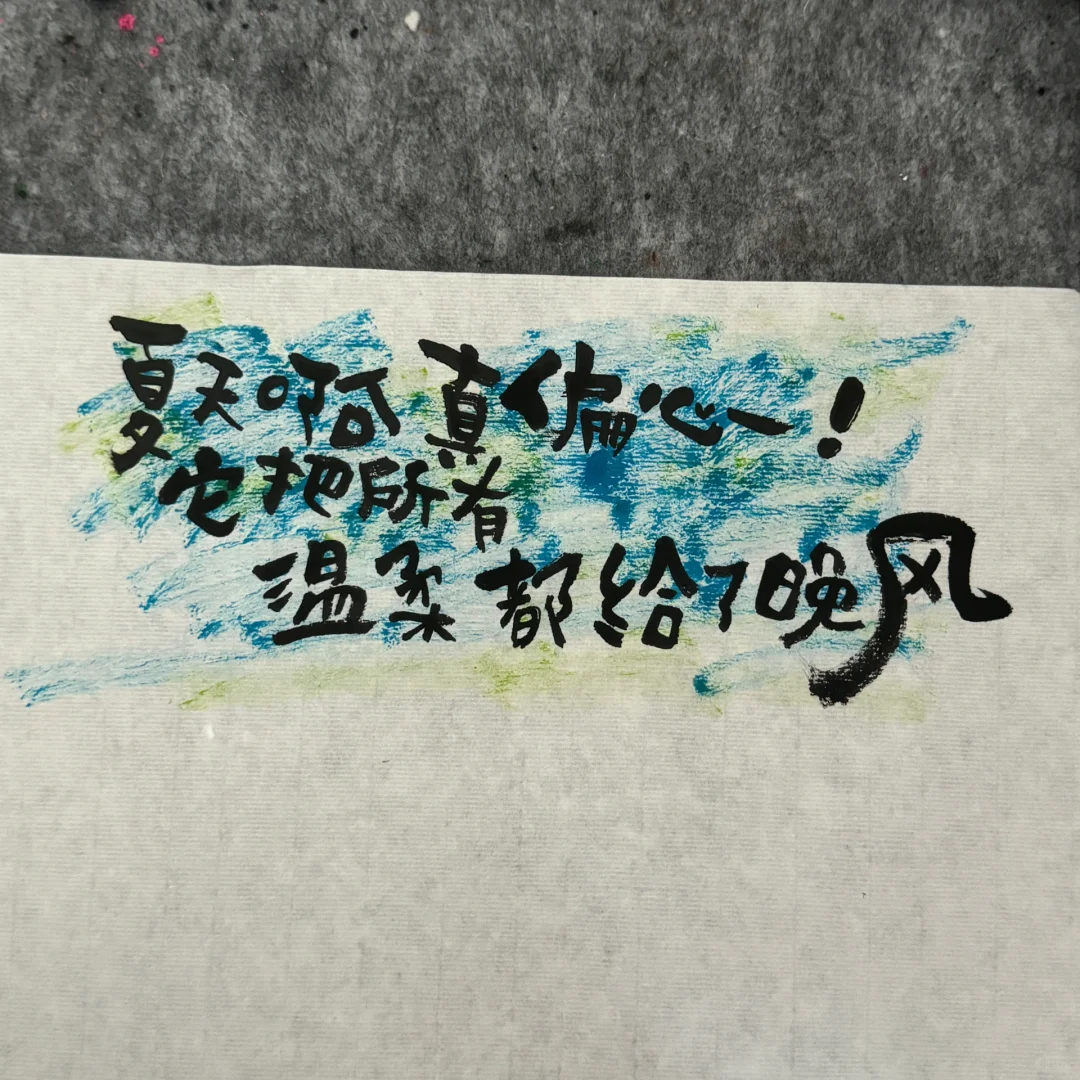 夏天啊真偏心！
它把所有
温柔都给了晚风